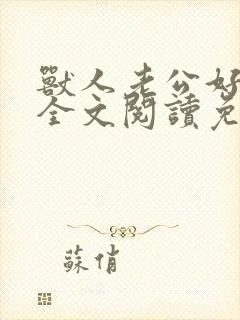 獸人老公好
全文閱讀免
蘇俏